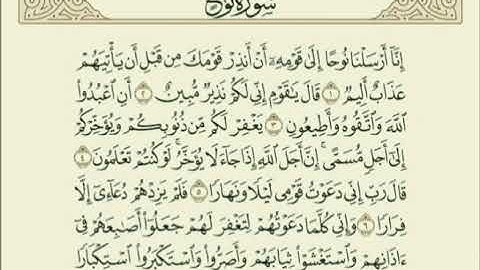 سُورَةُ نُوحٍ
إِنَّآ أَرۡسَلۡنَا نُوحًا إِلَىٰ قَوۡمِهِۦٓ أَنۡ أَنذِرۡ قَوۡمَكَ مِن قَبۡلِ أَن يَأۡتِيَهُمۡ
عَذَابٌ أَلِيمٞ ١ قَالَ يَٰقَوۡمِ إِنِّي لَكُمۡ نَذِيرٞ مُّبِينٌ ٢ أَنِ ٱعۡبُدُواْ
ٱللَّهَ وَٱتَّقُوهُ وَأَطِيعُونِ ٣ يَغۡفِرۡ لَكُم مِّن ذُنُوبِكُمۡ وَيُؤَخِّرۡكُمۡ
إِلَىٰٓ أَجَلٖ مُّسَمًّىۚ إِنَّ أَجَلَ ٱللَّهِ إِذَا جَآءَ لَا يُؤَخَّرُۚ لَوۡ كُنتُمۡ تَعۡلَمُونَ ٤
قَالَ رَبِّ إِنِّي دَعَوۡتُ قَوۡمِي لَيۡلٗا وَنَهَارٗا ٥ فَلَمۡ يَزِدۡهُمۡ دُعَآءِيٓ إِلَّا
فِرَارٗا ٦ وَإِنِّي كُلَّمَا دَعَوۡتُهُمۡ لِتَغۡفِرَ لَهُمۡ جَعَلُوٓاْ أَصَٰبِعَهُمۡ فِيٓ
ءَاذَانِهِمۡ وَٱسۡتَغۡشَوۡاْ ثِيَابَهُمۡ وَأَصَرُّواْ وَٱسۡتَكۡبَرُواْ ٱسۡتِكۡبَارٗا